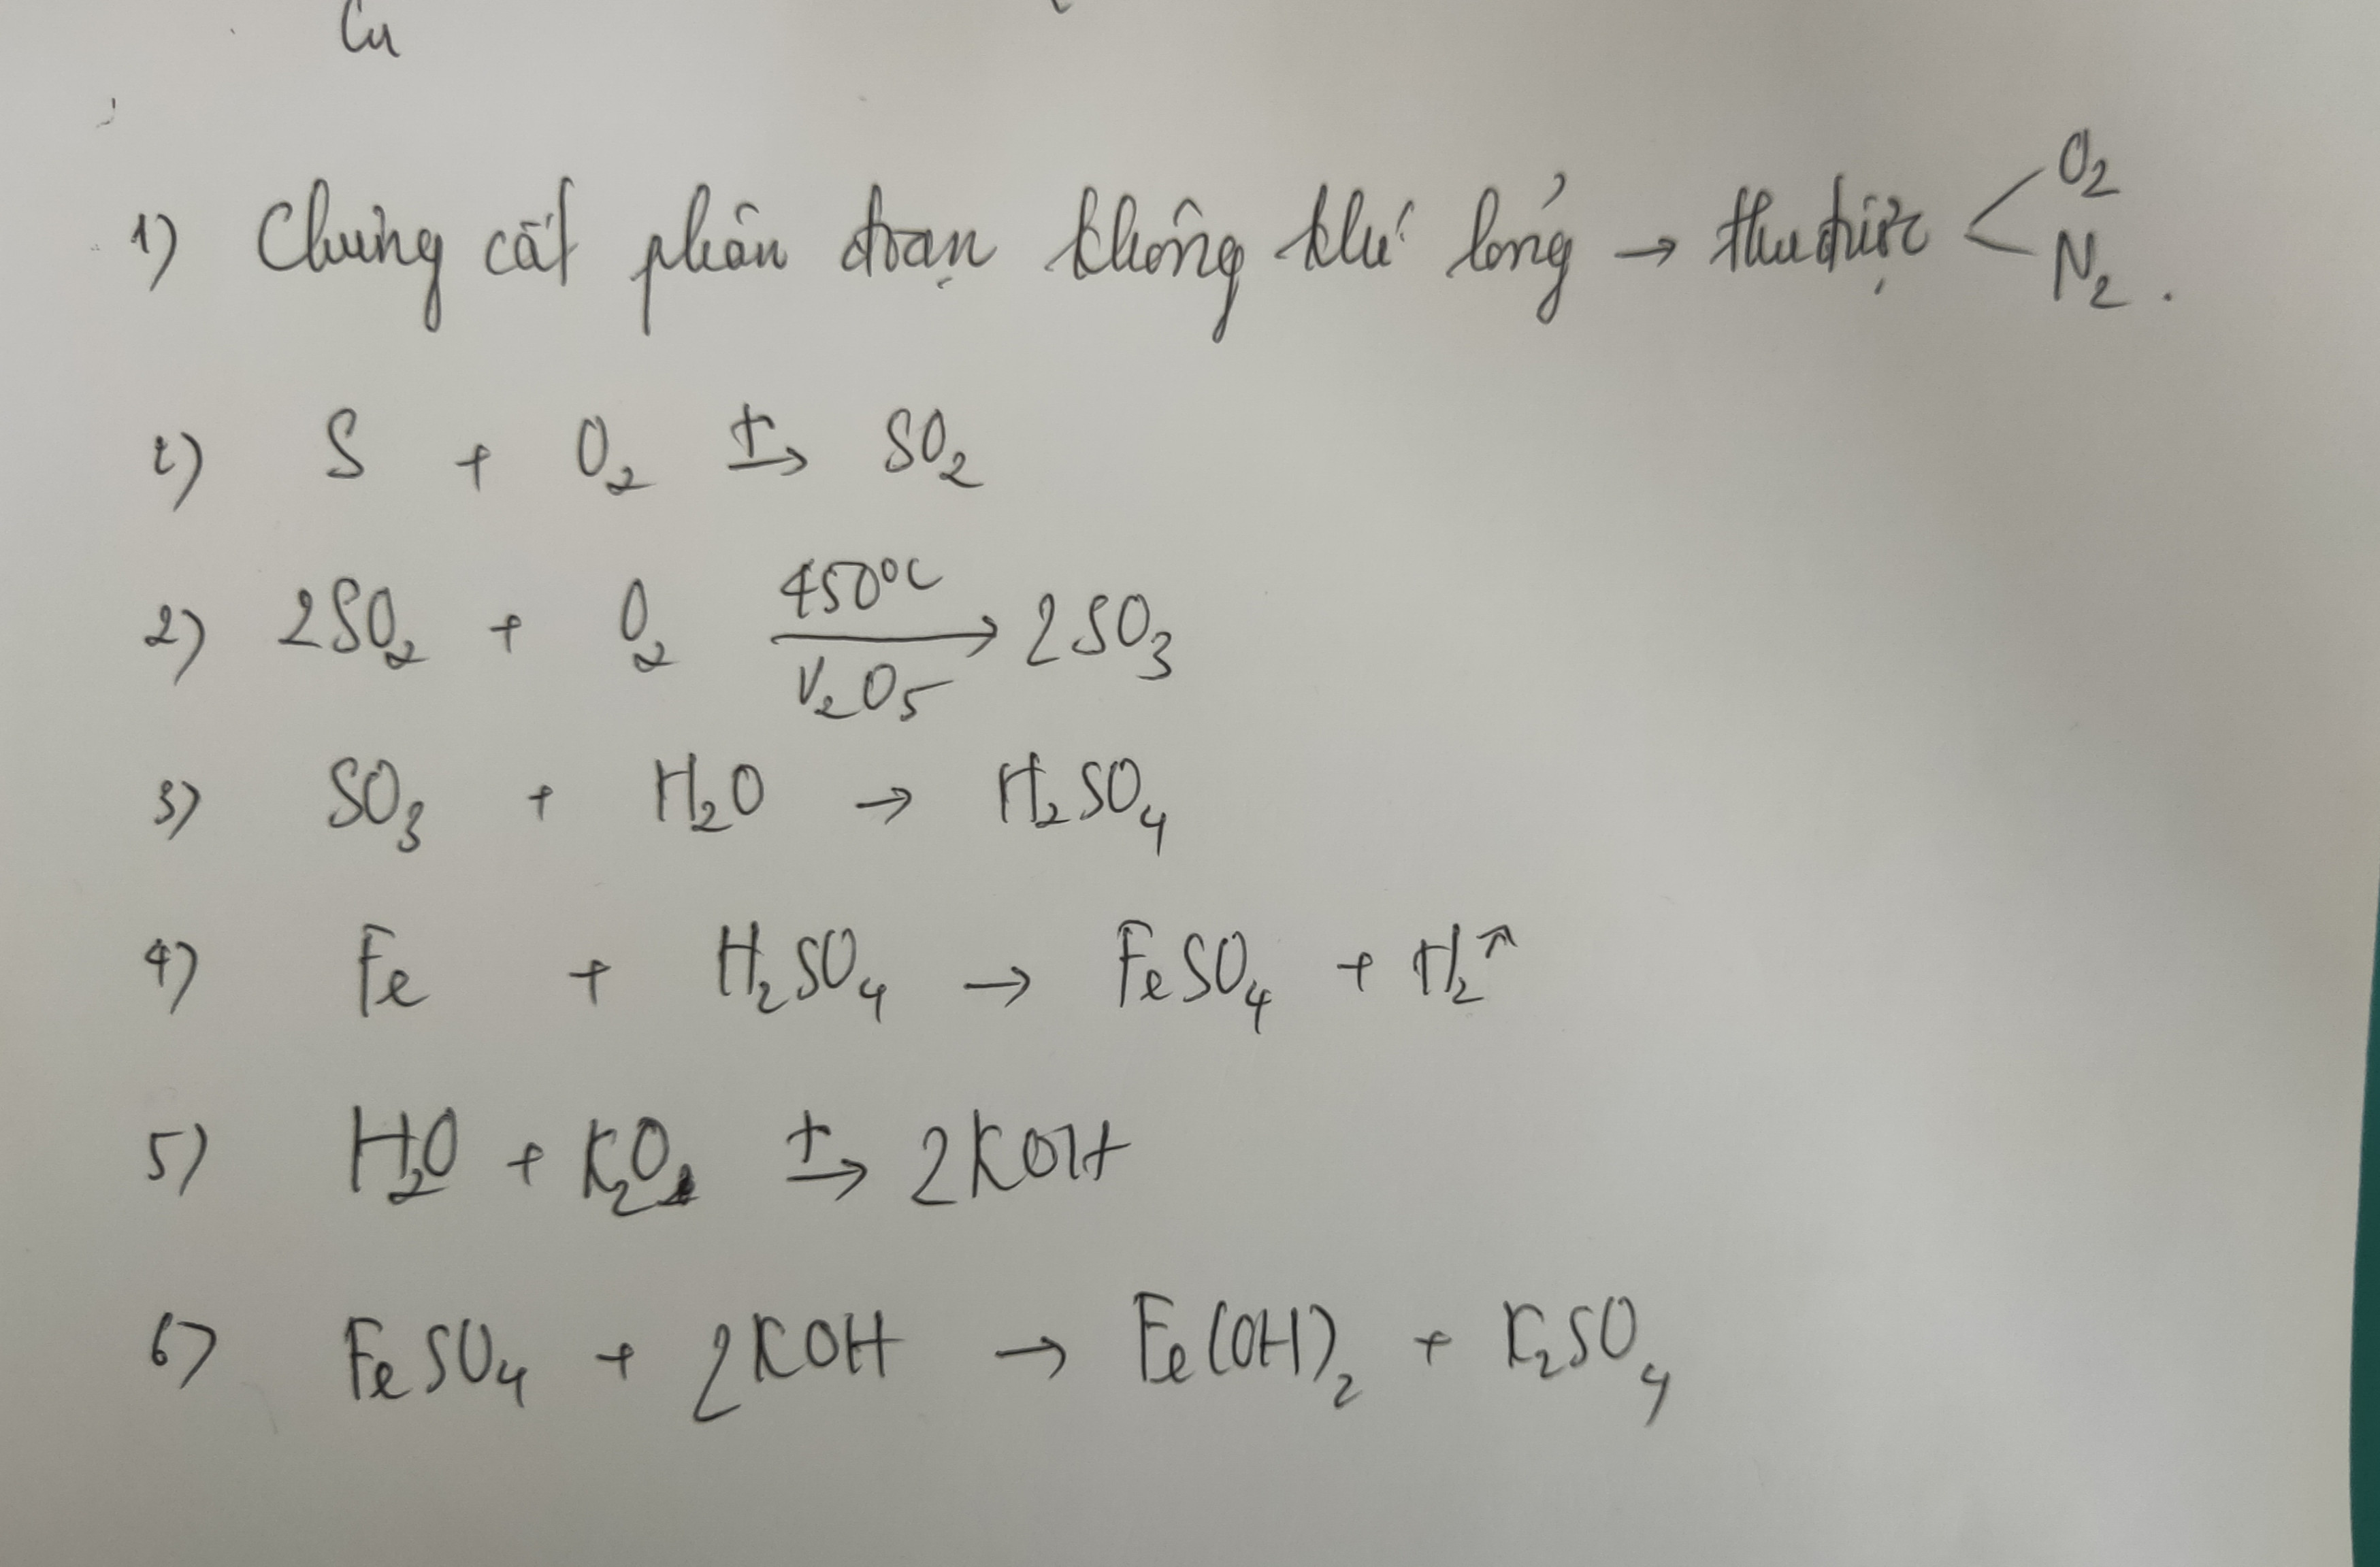 Cu
1) Chưng cất phân đoạn không khí lỏng → thu được < O₂ N₂.
1) S + O₂ t→ SO₂
2) 2SO₂ + O₂ 450°C→V₂O₅ 2SO₃
3) SO₃ + H₂O → H₂SO₄
4) Fe + H₂SO₄ → FeSO₄ + H₂↑
5) H₂O + K₂O t→ 2KOH
6) FeSO₄ + 2KOH → Fe(OH)₂ + K₂SO₄